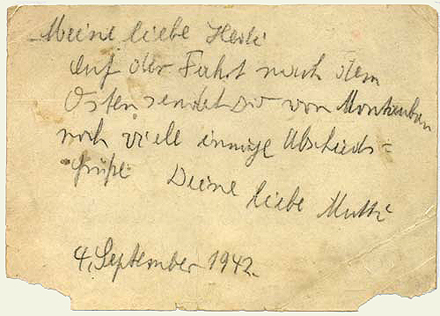 Meine liebe Hedi
Auf der Fahrt nach dem
Osten sendet Dir von Montauban
noch viele innige Abschieds=
grüße Deine
liebe Mutti
4. September 1942.